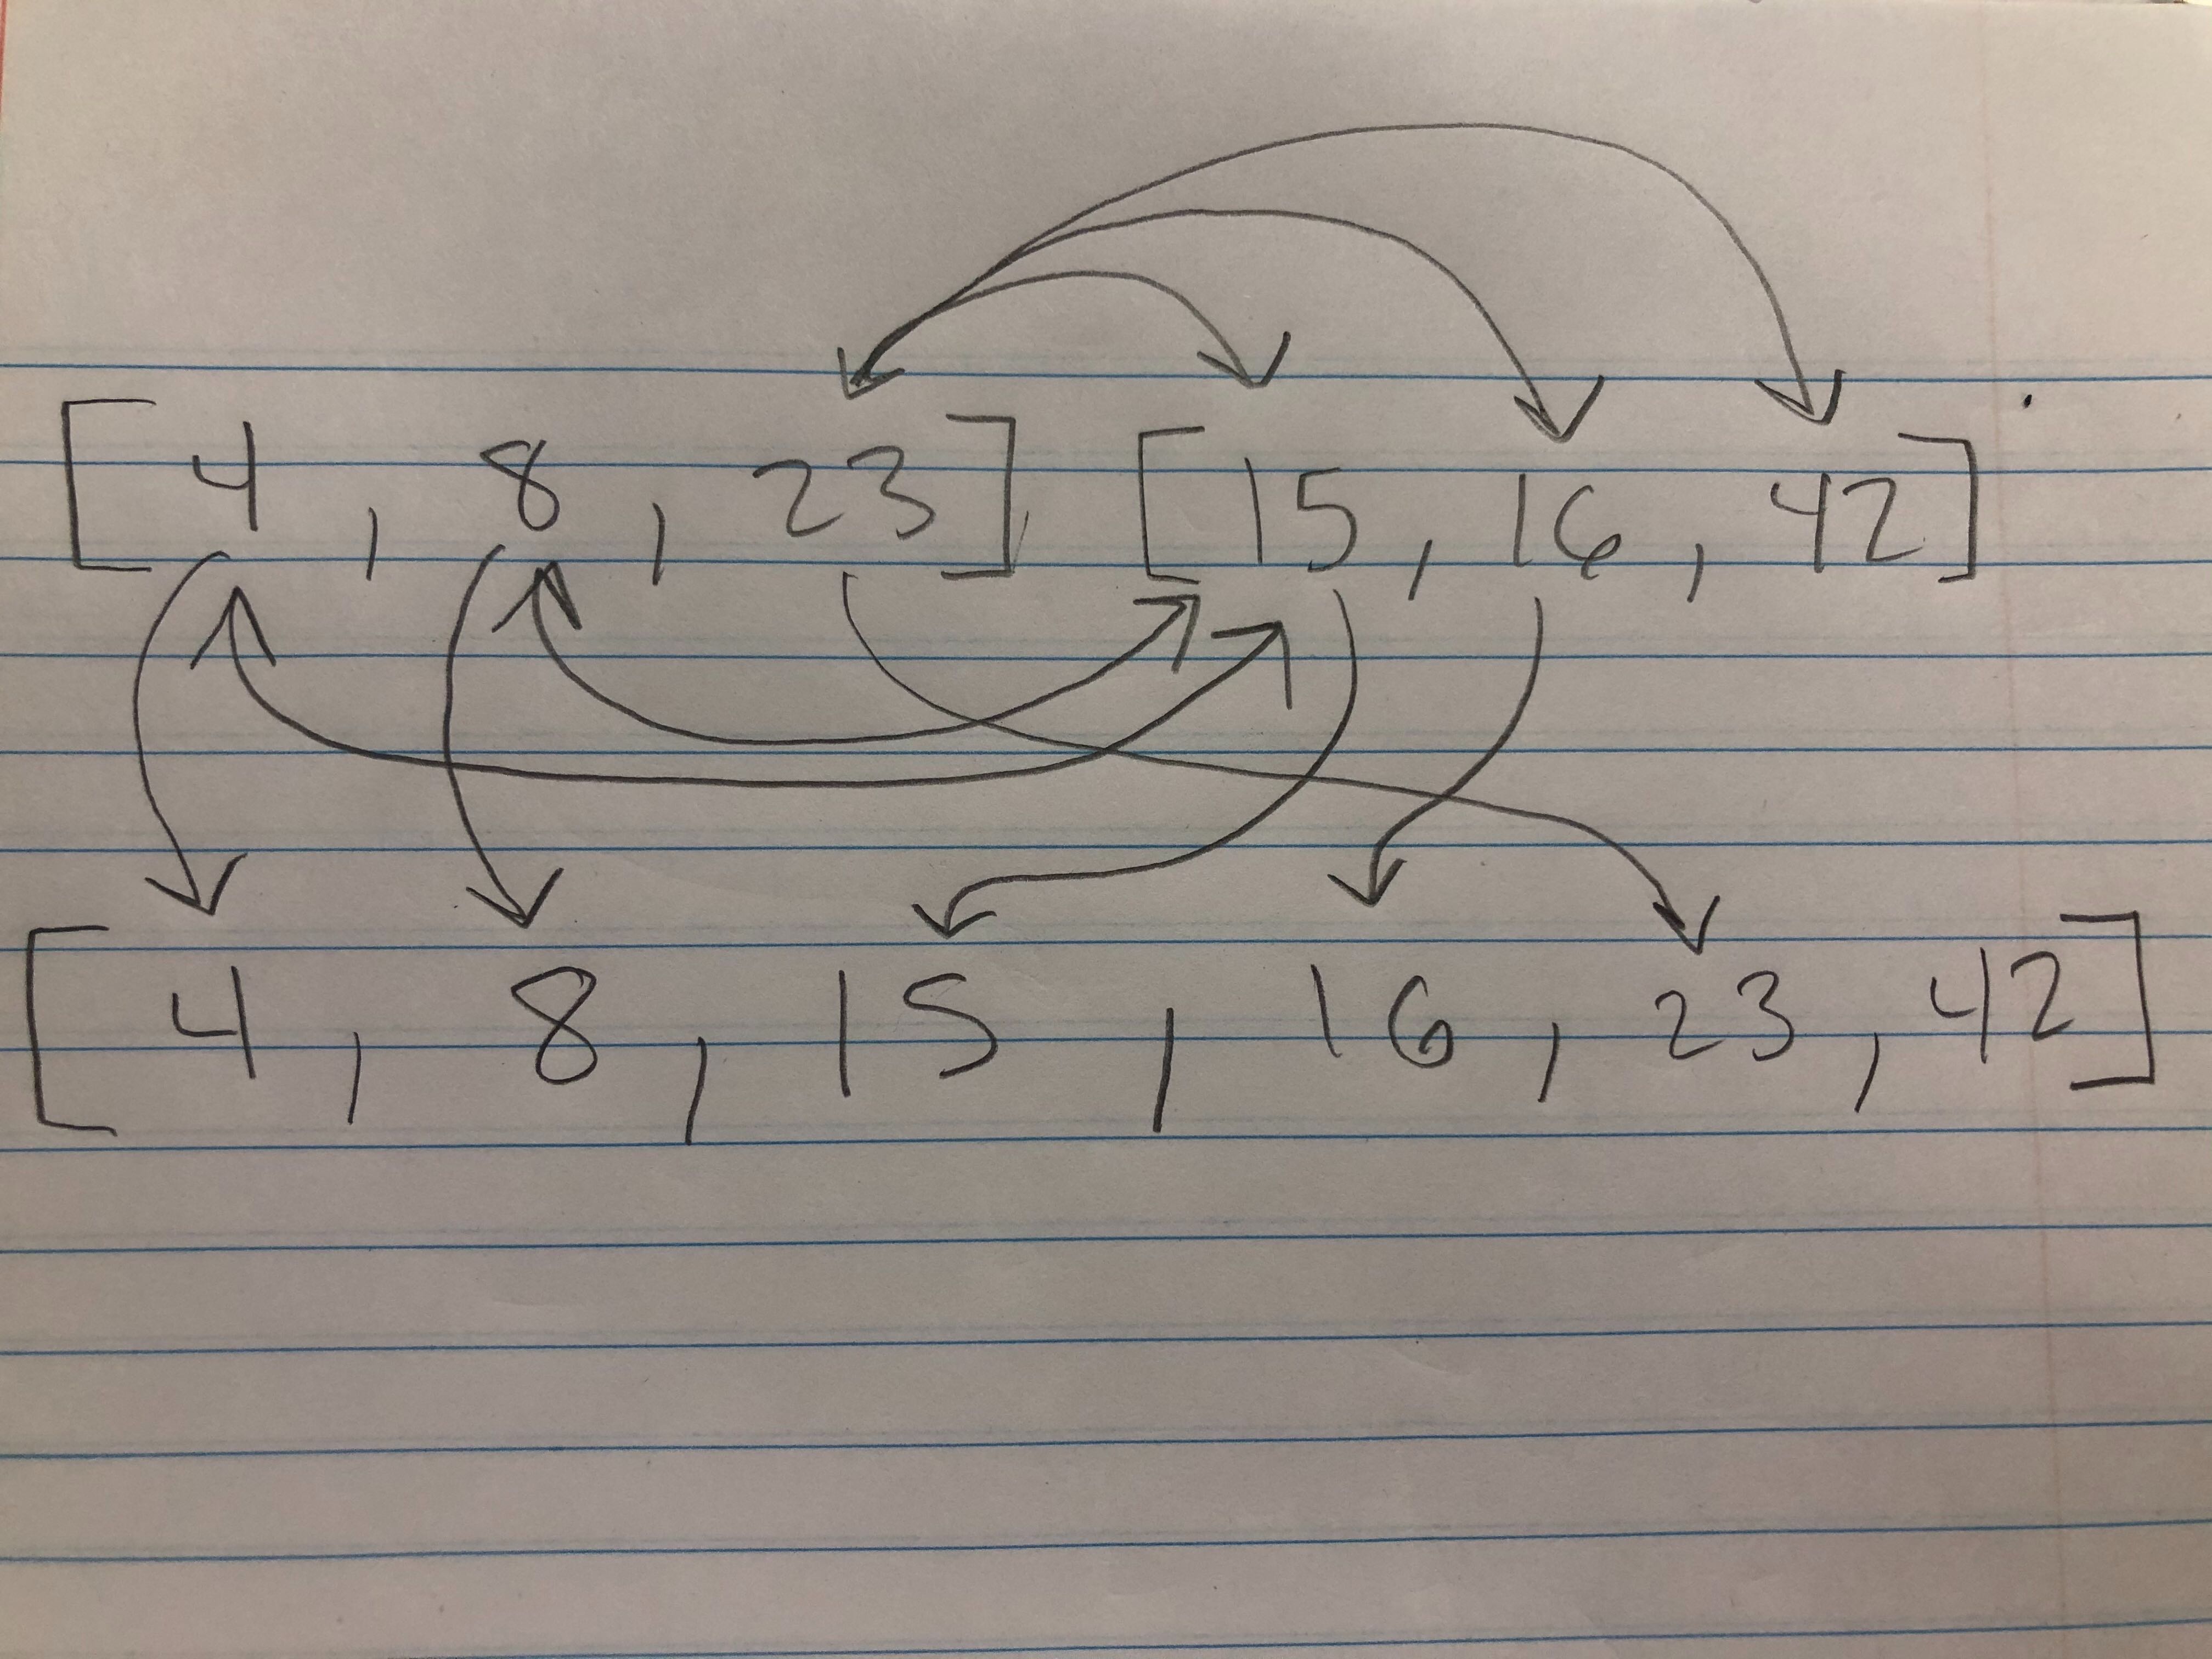 [4, 8, 23], [15, 16, 42]
[4, 8, 15, 16, 23, 42]